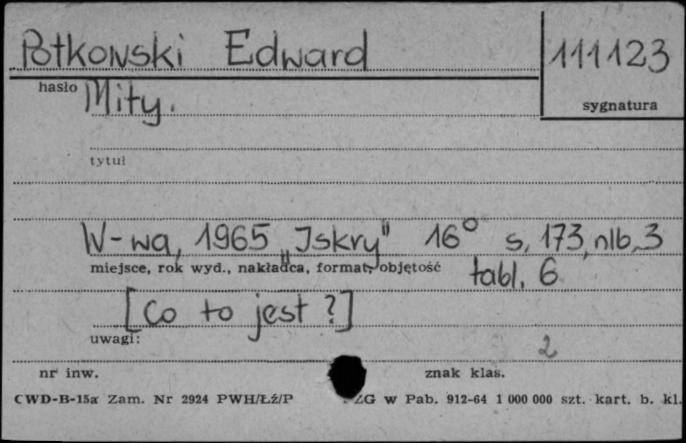 Potkowski Edward 111123
hasło Mity. sygnatura
tytuł
W-wa, 1965 „Iskry" 16° s, 173, nlb, 3
miejsce, rok wyd., nakładca, format, objętość tabl. 6
[Co to jest ?]
uwagi: 2
nr inw. znak klas.
CWD-B-15a Zam. Nr 2924 PWH/Łź/P ZG w Pab. 912-64 1 000 000 szt. kart. b. kl.